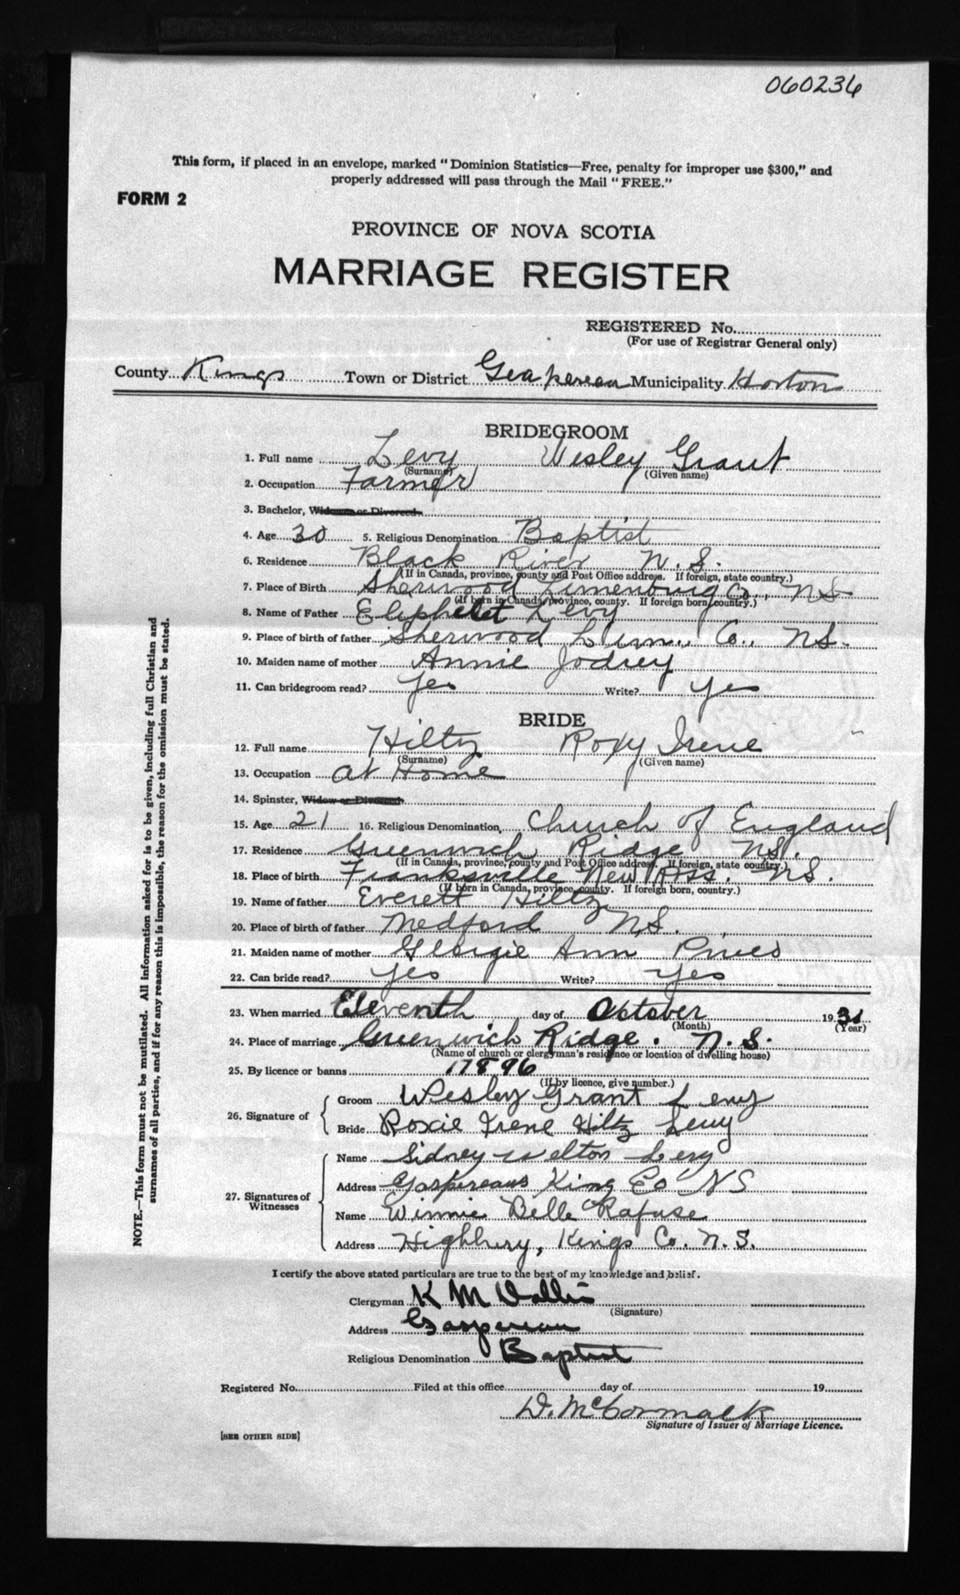 060236
This form, if placed in an envelope, marked "Dominion Statistics—Free, penalty for improper use $300," and
properly addressed will pass through the Mail "FREE."
FORM 2
PROVINCE OF NOVA SCOTIA
MARRIAGE REGISTER
REGISTERED No.
(For use of Registrar General only)
County Kings Town or District Gaspereau Municipality Horton
BRIDEGROOM
1. Full name Levy Wesley Grant
(Surname) (Given name)
2. Occupation Farmer
3. Bachelor, Widower or Divorced
4. Age 30 5. Religious Denomination Baptist
6. Residence Black River N.S.
(If in Canada, province, county and Post Office address. If foreign, state country.)
7. Place of Birth Sherwood Lunenburg Co., NS
(If born in Canada, province, county. If foreign born, country.)
8. Name of Father Eliphelet Levy
9. Place of birth of father Sherwood Lun., Co., NS.
10. Maiden name of mother Annie Jodrey
11. Can bridegroom read? Yes Write? Yes
BRIDE
12. Full name Hiltz Roxy Irene
(Surname) (Given name)
13. Occupation At Home
14. Spinster, Widow or Divorced
15. Age 21 16. Religious Denomination Church of England
17. Residence Greenwich Ridge NS.
(If in Canada, province, county and Post Office address. If foreign, state country.)
18. Place of birth Franksville New Ross. NS.
(If born in Canada, province, county. If foreign born, country.)
19. Name of father Everett Hiltz
20. Place of birth of father Medford NS.
21. Maiden name of mother Georgie Ann Pineo
22. Can bride read? Yes Write? Yes
23. When married Eleventh day of October 19
(Month) (Year)
24. Place of marriage Greenwich Ridge. N.S.
(Name of church or clergyman's residence or location of dwelling house)
25. By licence or banns 17896
(If by licence, give number.)
26. Signature of
Groom Wesley Grant Levy
Bride Roxie Irene Hiltz Levy
27. Signatures of Witnesses
Name Sidney Welton Levy
Address Gaspereaus King Co NS
Name Winnie Belle Rafuse
Address Highbury, Kings Co. N.S.
I certify the above stated particulars are true to the best of my knowledge and belief.
Clergyman K M
(Signature)
Address Gaspereau
Religious Denomination Baptist
Registered No. Filed at this office day of 19
D. McCormack
Signature of Issuer of Marriage Licence.
[SEE OTHER SIDE]
NOTE.—This form must not be mutilated. All information asked for is to be given, including full Christian and
surnames of all parties, and if for any reason this is impossible, the reason for the omission must be stated.